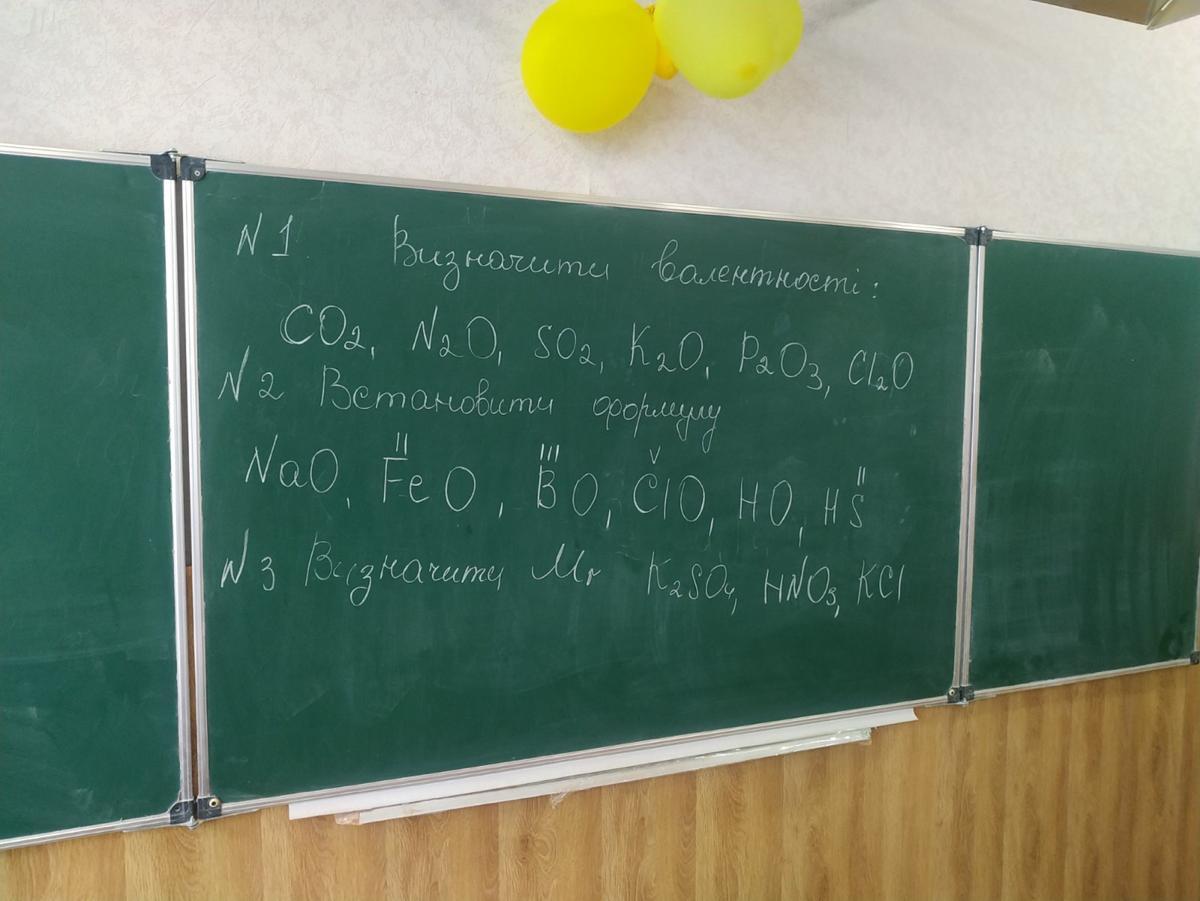 N 1 Визначити валентності:
CO₂, N₂O, SO₂, K₂O, P₂O₃, Cl₂O
N 2 Встановити формулу
II III V II
NaO, FeO, BO, ClO, HO, HS
N 3 Визначити Mr K₂SO₄, HNO₃, KCl